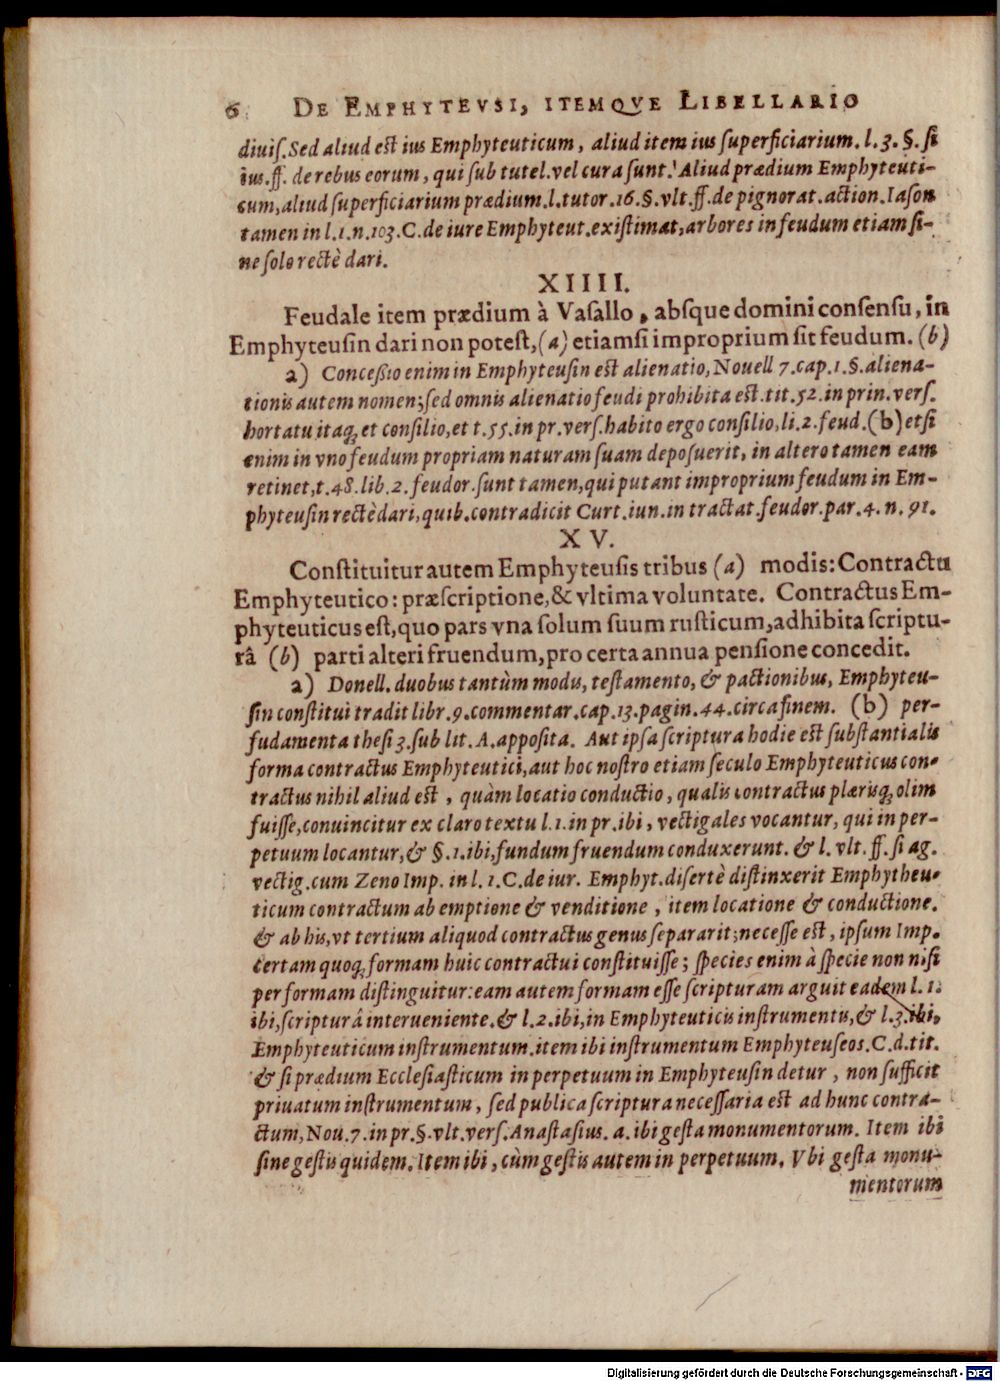 6 DE EMPHYTEVSI, ITEMQVE LIBELLARIO
diuiſ. Sed aliud eſt ius Emphyteuticum, aliud item ius ſuperficiarium. l. 3. §. ſi
ius. ff. de rebus eorum, qui ſub tutel. vel cura ſunt. Aliud prædium Emphyteuti-
cum, aliud ſuperficiarium prædium. l. tutor. 16. §. vlt. ff. de pignorat. action. Iaſon
tamen in l. 1. n. 103. C. de iure Emphyteut. exiſtimat, arbores in feudum etiam ſi-
ne ſolo rectè dari.
XIIII.
Feudale item prædium à Vaſallo, abſque domini conſenſu, in
Emphyteuſin dari non poteſt, (a) etiamſi improprium ſit feudum. (b)
a) Conceßio enim in Emphyteuſin eſt alienatio, Nouell 7. cap. 1. §. aliena-
tionis autem nomen; ſed omnis alienatio feudi prohibita eſt. tit. 52. in prin. verſ.
hortatu itaq; et conſilio, et t. 55. in pr. verſ. habito ergo conſilio, li. 2. feud. (b) etſi
enim in vno feudum propriam naturam ſuam depoſuerit, in altero tamen eam
retinet, t. 48. lib. 2. feudor. ſunt tamen, qui putant improprium feudum in Em-
phyteuſin rectè dari, quib. contradicit Curt. iun. in tractat. feudor. par. 4. n. 91.
XV.
Conſtituitur autem Emphyteuſis tribus (a) modis: Contractu
Emphyteutico: præſcriptione, & vltima voluntate. Contractus Em-
phyteuticus eſt, quo pars vna ſolum ſuum ruſticum, adhibita ſcriptu-
râ (b) parti alteri fruendum, pro certa annua penſione concedit.
a) Donell. duobus tantùm modis, teſtamento, & pactionibus, Emphyteu-
ſin conſtitui tradit libr. 9. commentar. cap. 13. pagin. 44. circa finem. (b) per-
fudamenta theſi 3. ſub lit. A. appoſita. Aut ipſa ſcriptura hodie eſt ſubſtantialis
forma contractus Emphyteutici, aut hoc noſtro etiam ſeculo Emphyteuticus con-
tractus nihil aliud eſt, quàm locatio conductio, qualis contractus plærisq; olim
fuiſſe, conuincitur ex claro textu l. 1. in pr. ibi, vectigales vocantur, qui in per-
petuum locantur, & §. 1. ibi, fundum fruendum conduxerunt. & l. vlt. ff. ſi ag.
vectig. cum Zeno Imp. in l. 1. C. de iur. Emphyt. diſertè diſtinxerit Emphytheu-
ticum contractum ab emptione & venditione, item locatione & conductione.
& ab his, vt tertium aliquod contractus genus ſepararit; neceſſe eſt, ipſum Imp.
certam quoq; formam huic contractui conſtituiſſe; ſpecies enim à ſpecie non niſi
per formam diſtinguitur: eam autem formam eſſe ſcripturam arguit eadem l. 1.
ibi, ſcripturâ interueniente. & l. 2. ibi, in Emphyteuticis inſtrumentis, & l. 3. ibi,
Emphyteuticum inſtrumentum. item ibi inſtrumentum Emphyteuſeos. C. d. tit.
& ſi prædium Eccleſiaſticum in perpetuum in Emphyteuſin detur, non ſufficit
priuatum inſtrumentum, ſed publica ſcriptura neceſſaria eſt ad hunc contra-
ctum, Nou. 7. in pr. §. vlt. verſ. Anaſtaſius. a. ibi geſta monumentorum. Item ibi
ſine geſtis quidem. Item ibi, cùm geſtis autem in perpetuum. Vbi geſta monu-
mentorum
Digitalisierung gefördert durch die Deutsche Forschungsgemeinschaft - DFG